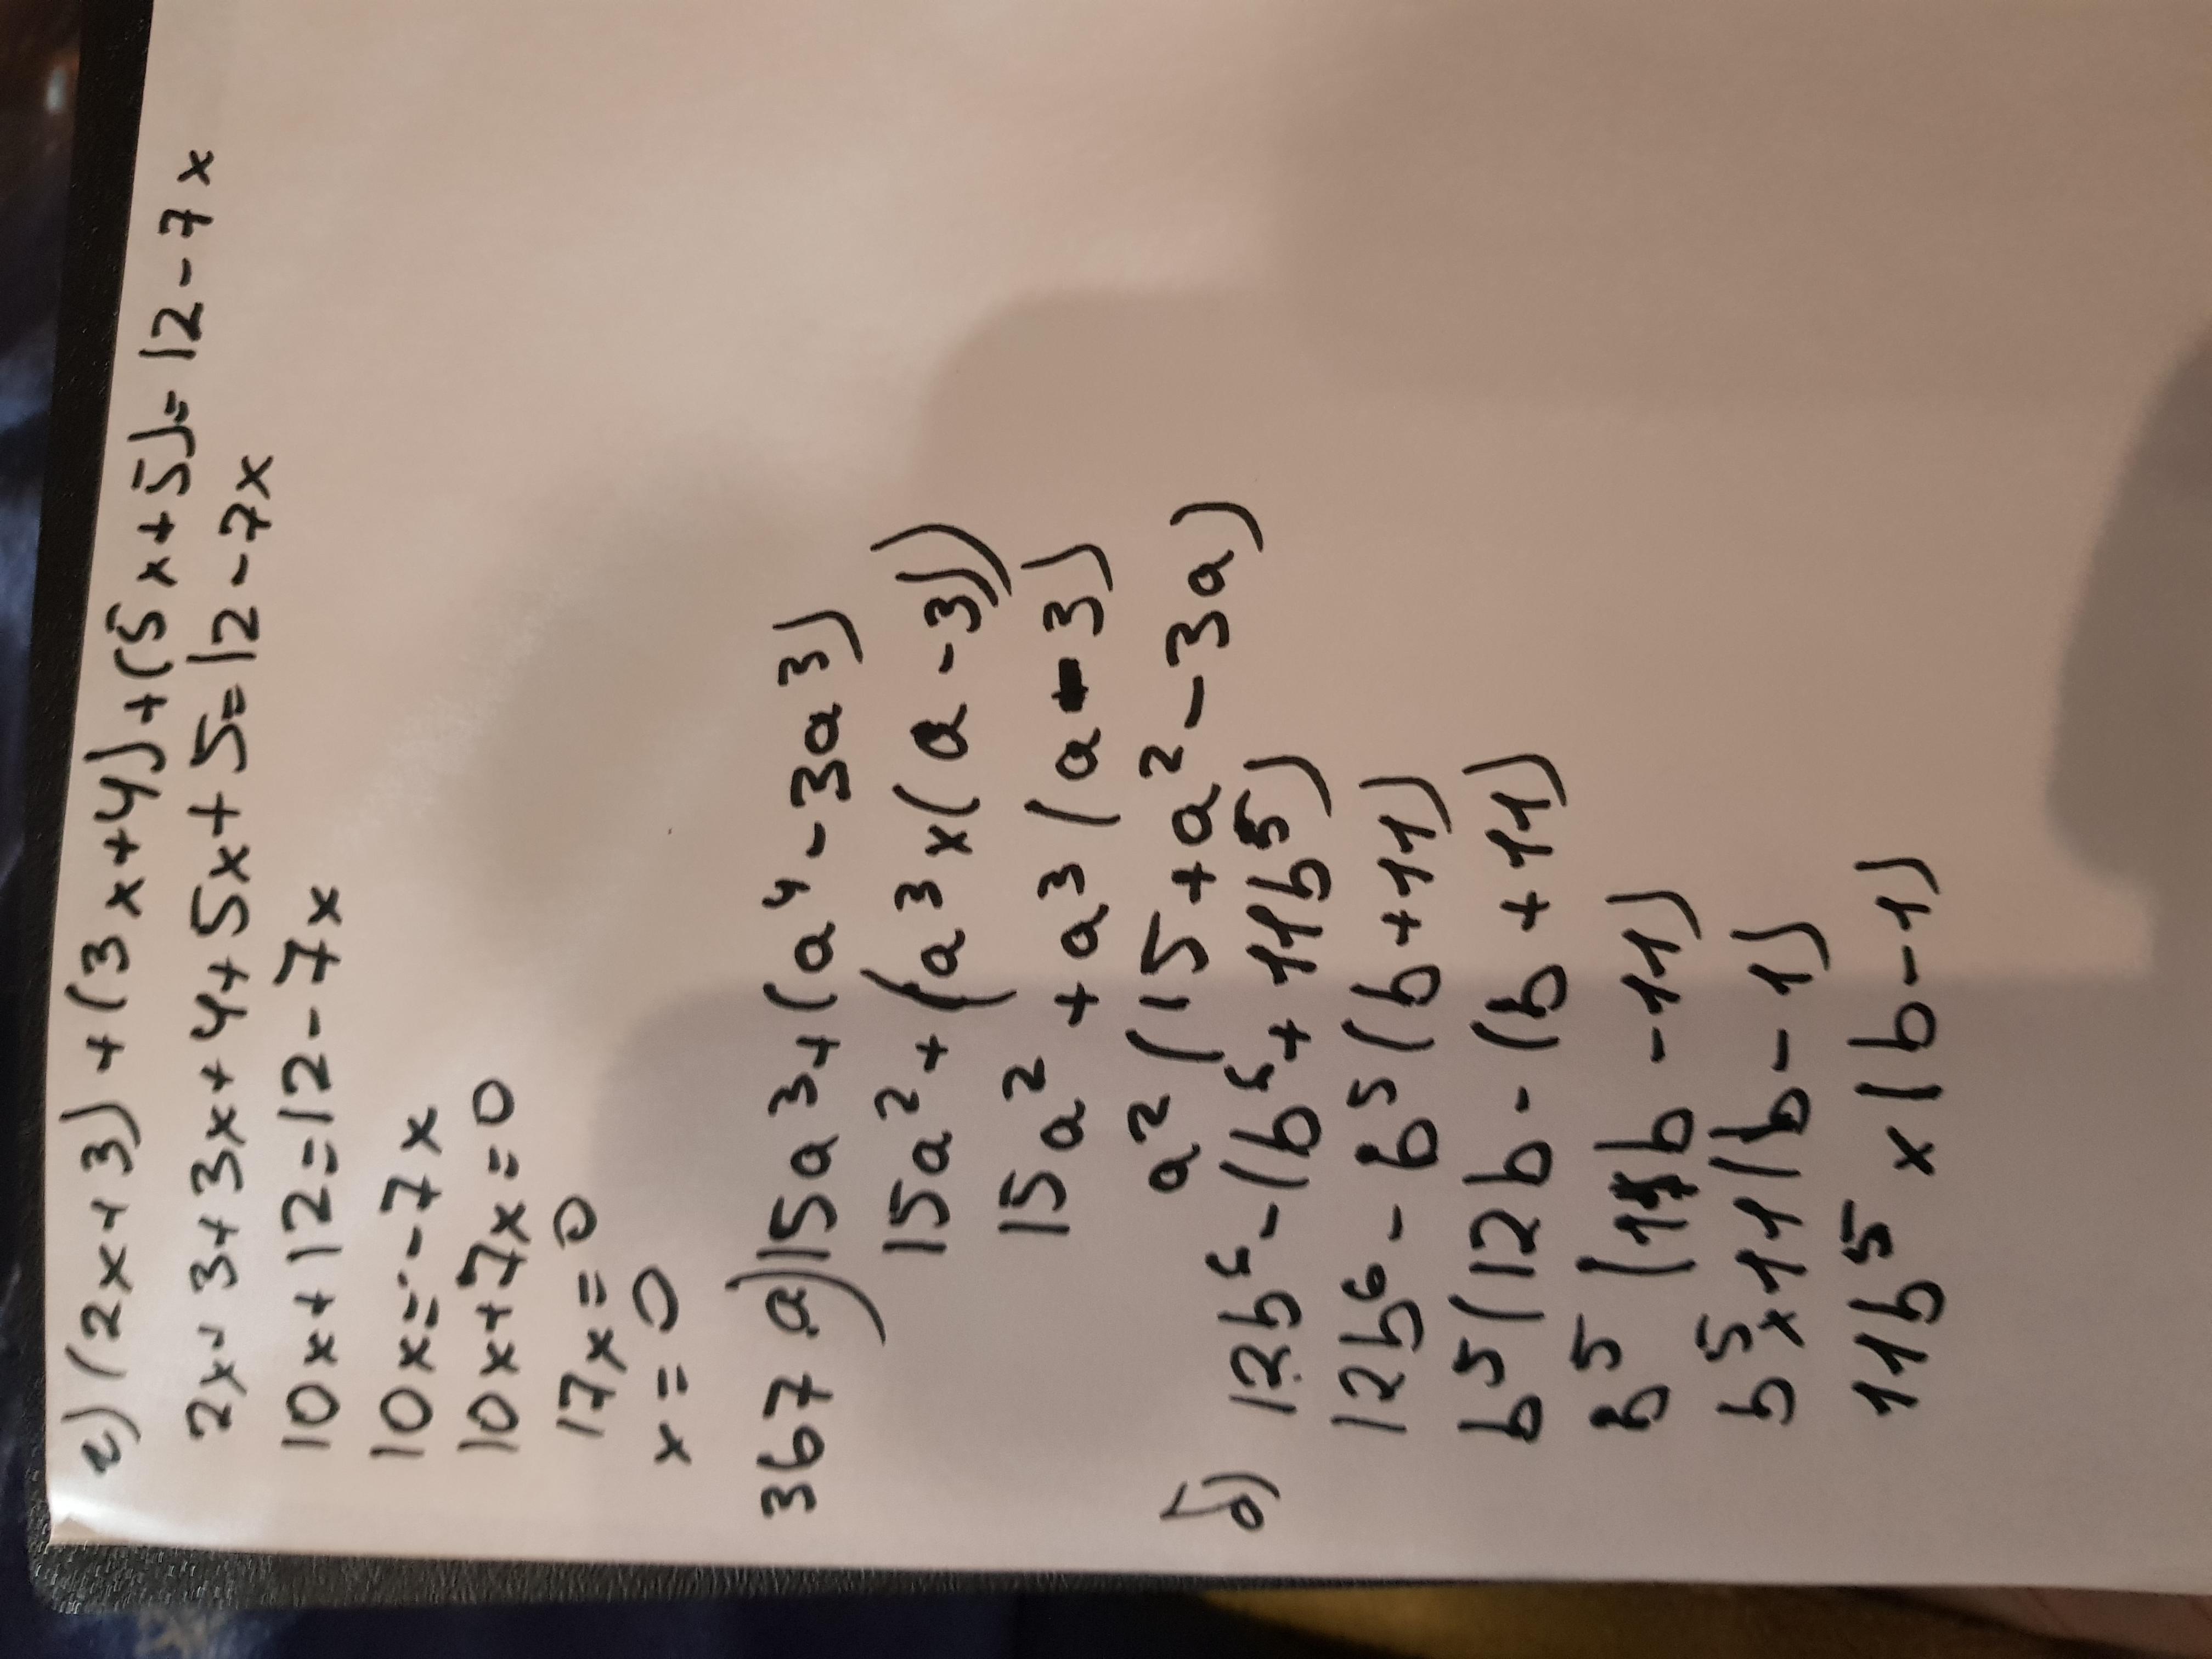 г) (2x+3)+(3x+4)+(5x+5)=12-7x
2x+3+3x+4+5x+5=12-7x
10x+12=12-7x
10x=-7x
10x+7x=0
17x=0
x=0
367 а) 15a³+(a⁴-3a³)
15a²+(a³x(a-3))
15a²+a³(a-3)
a²(15+a²-3a)
б) 12b⁶-(b⁶+11b⁵)
12b⁶-b⁵(b+11)
b⁵(12b-(b+11)
b⁵(11b-11)
b⁵x11(b-1)
11b⁵x(b-1)